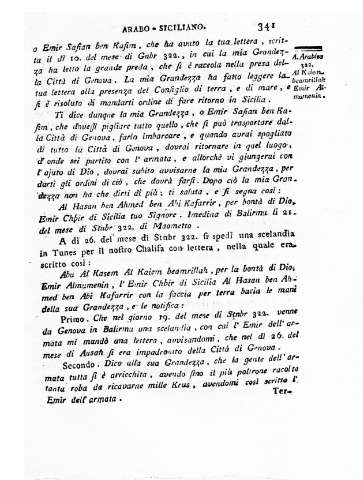 ARABO - SICILIANO. 341
o Emir Safian ben Kasim, che ha avuto la tua lettera, scrit-
ta il dì 10. del mese di Gabr 322., in cui la mia Grandez-
za ha letto la grande preda, che si è raccolta nella presa del-
la Città di Genova. La mia Grandezza ha fatto leggere la
tua lettera alla presenza del Consiglio di terra, e di mare, e
si è risoluto di mandarti ordine di fare ritorno in Sicilia.
A. Arabico
322.
Al Kaiem
beamrillah
Emir Al-
mumenin.
Ti dice dunque la mia Grandezza, o Emir Safian ben Ka-
sim, che dovessi pigliare tutto quello, che si può trasportare dal-
la Città di Genova, farlo imbarcare, e quando avrai spogliato
di tutto la Città di Genova, dovrai ritornare in quel luogo,
d'onde sei partito con l' armata, e allorchè vi giungerai con
l' ajuto di Dio, dovrai subito avvisarne la mia Grandezza, per
darti gli ordini di ciò, che dovrà farsi. Dopo ciò la mia Gran-
dezza non ha che dirti di più; ti saluta, e si segna così:
Al Hasan ben Ahmed ben Abi Kafarrir, per bontà di Dio,
Emir Chbir di Sicilia tuo Signore. Imedina di Balirmu li 21.
del mese di Stnbr 322. di Maometto.
A dì 26. del mese di Stnbr 322. si spedì una scelandia
in Tunes per il nostro Chalifa con lettera, nella quale era
scritto così:
Abu Al Kasem Al Kaiem beamrillah, per la bontà di Dio,
Emir Almumenin, l' Emir Chbir di Sicilia Al Hasan ben Ah-
med ben Abi Kafarrir con la faccia per terra bacia le mani
della sua Grandezza, e le notifica:
Primo. Che nel giorno 19. del mese di Stnbr 322. venne
da Genova in Balirma una scelandia, con cui l' Emir dell' ar-
mata mi mandò una lettera, avvisandomi, che nel dì 26. del
mese di Ausah si era impadronito della Città di Genova.
Secondo. Dico alla sua Grandezza, che la gente dell' ar-
mata tutta si è arricchita, avendo sino il più poltrone raccolta
tanta roba da ricavarne mille Krus, avendomi così scritto l'
Emir dell' armata.
Ter-